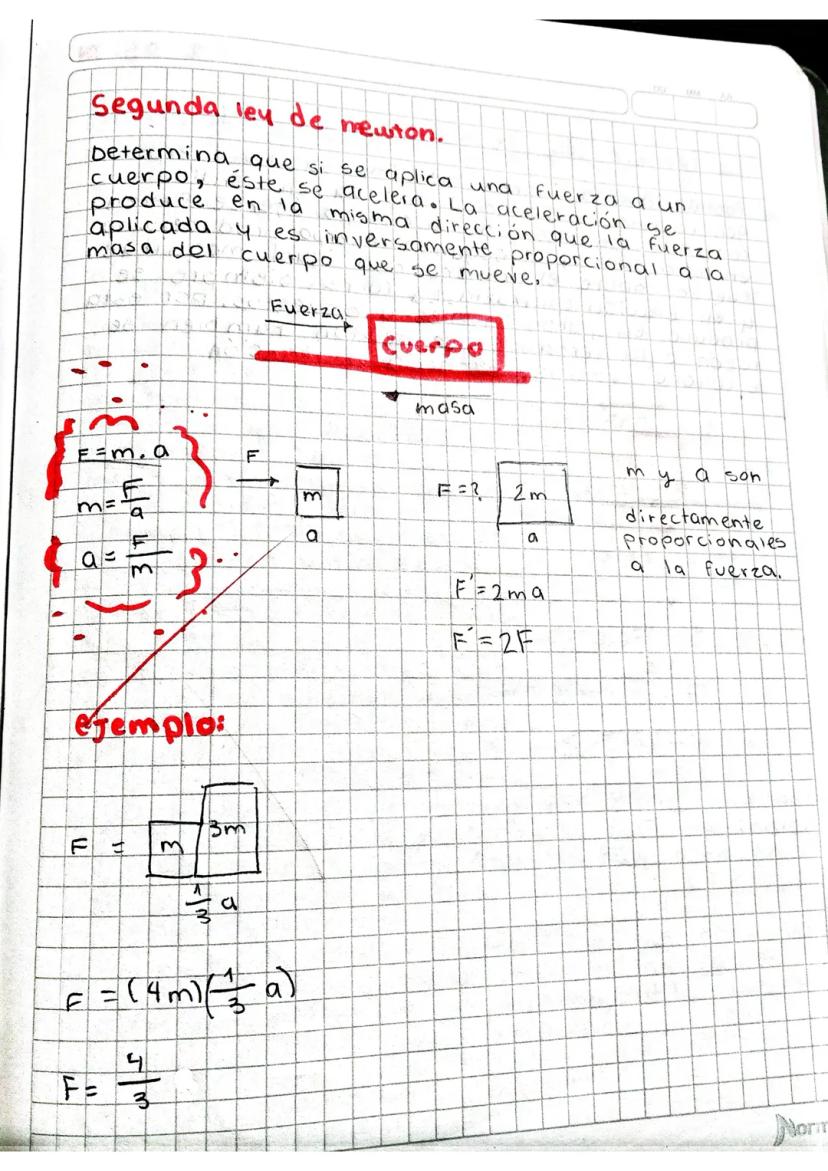 Segunda ley de newton.
Determina que si se aplica una fuerza a un
cuerpo, éste se acelera. La aceleración se
produce en la misma dirección que la fuerza
aplicada y es inversamente proporcional a la
masa del cuerpo que se mueve.
Fuerza
Cuerpo
masa
F=m.a
m=F/a
a=F/m
F
m
a
F=?
2m
a
F'=2ma
F'=2F
m y a son
directamente
proporcionales
a la fuerza.
ejemplo:
F =
m
3m
1/3 a
F = (4m)(1/3 a)
F= 4/3